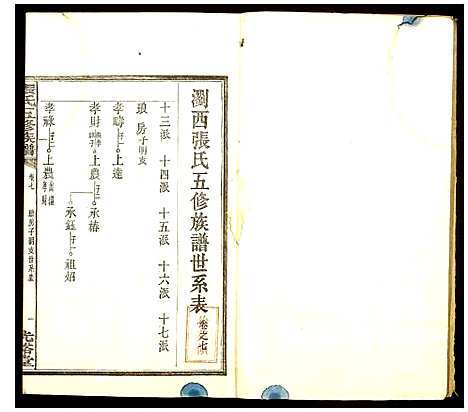 瀏西張氏五修族譜世系表
卷之七
十三派 十四派 十五派 十六派 十七派
琅房子明支
孝疇 子一 上達
孝財 子一 上農 承椿
承鈺 子一 祖炤
孝祿 上農
張氏五修族譜 卷七 琅房子明支世系表 一 光裕堂